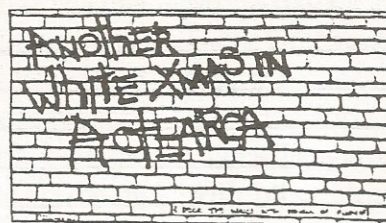 ANOTHER
WHITE XMAS IN
AOTEAROA